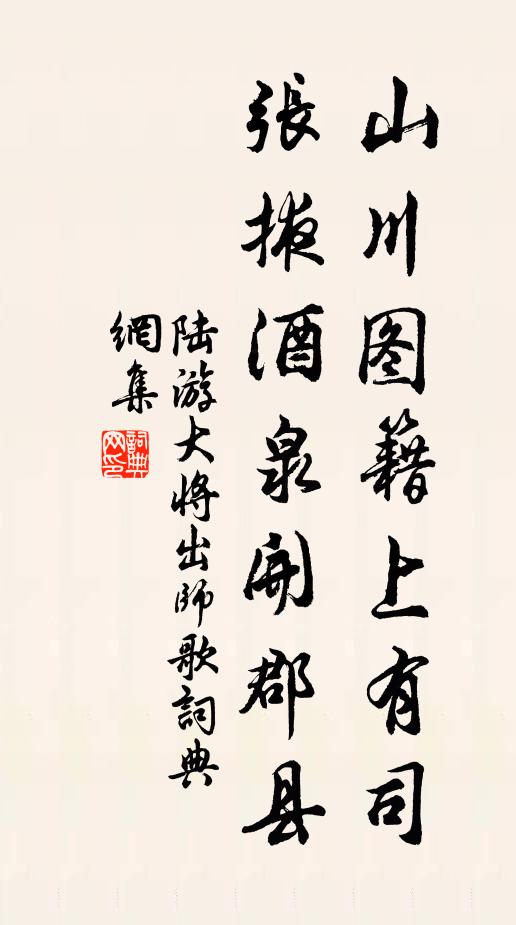 山川图籍上有司
張掖酒泉開郡县
陆游大将出师歌詞典
網集
詞典網印